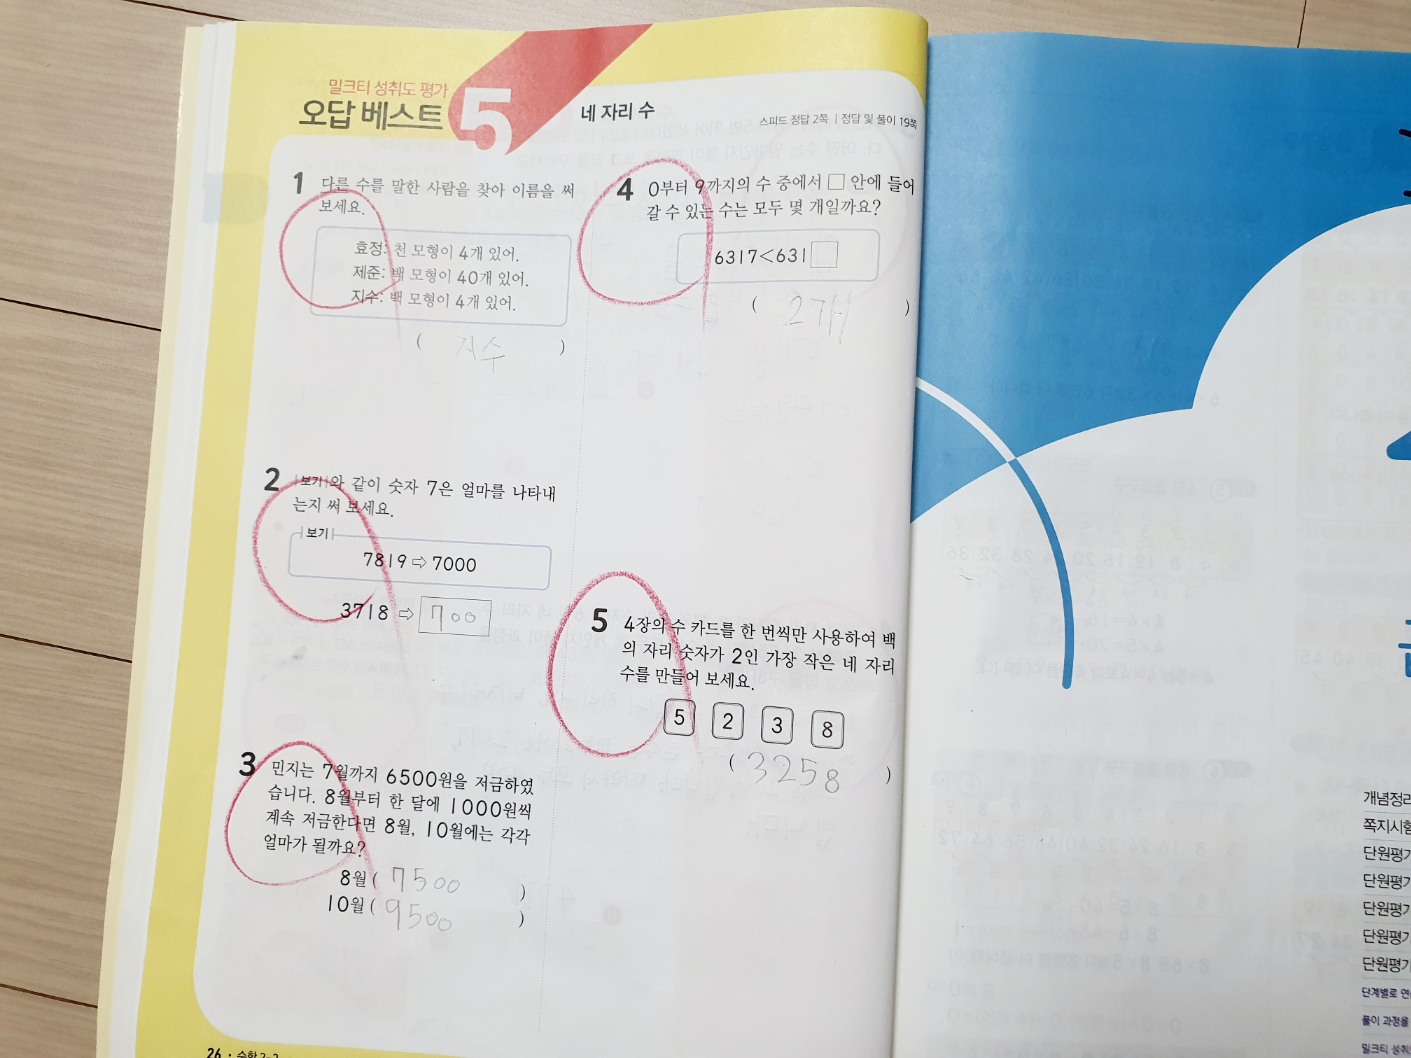 밀크티 성취도 평가
오답 베스트 5
네 자리 수
스피드 정답 2쪽 | 정답 및 풀이 19쪽
1 다른 수를 말한 사람을 찾아 이름을 써
보세요.
효정: 천 모형이 4개 있어.
제준: 백 모형이 40개 있어.
지수: 백 모형이 4개 있어.
( 지수 )
2 |보기|와 같이 숫자 7은 얼마를 나타내
는지 써 보세요.
|보기|
7819 ⇨ 7000
3718 ⇨ 700
3 민지는 7월까지 6500원을 저금하였
습니다. 8월부터 한 달에 1000원씩
계속 저금한다면 8월, 10월에는 각각
얼마가 될까요?
8월 ( 7500 )
10월 ( 9500 )
4 0부터 9까지의 수 중에서 □ 안에 들어
갈 수 있는 수는 모두 몇 개일까요?
6317<631□
( 2개 )
5 4장의 수 카드를 한 번씩만 사용하여 백
의 자리 숫자가 2인 가장 작은 네 자리
수를 만들어 보세요.
5 2 3 8
( 3258 )
26 · 수학 2-2
개념정리
쪽지시험
단원평가
단원평가
단원평가
단원평가
단원평가
단계별로 연
풀이 과정을
밀크티 성취